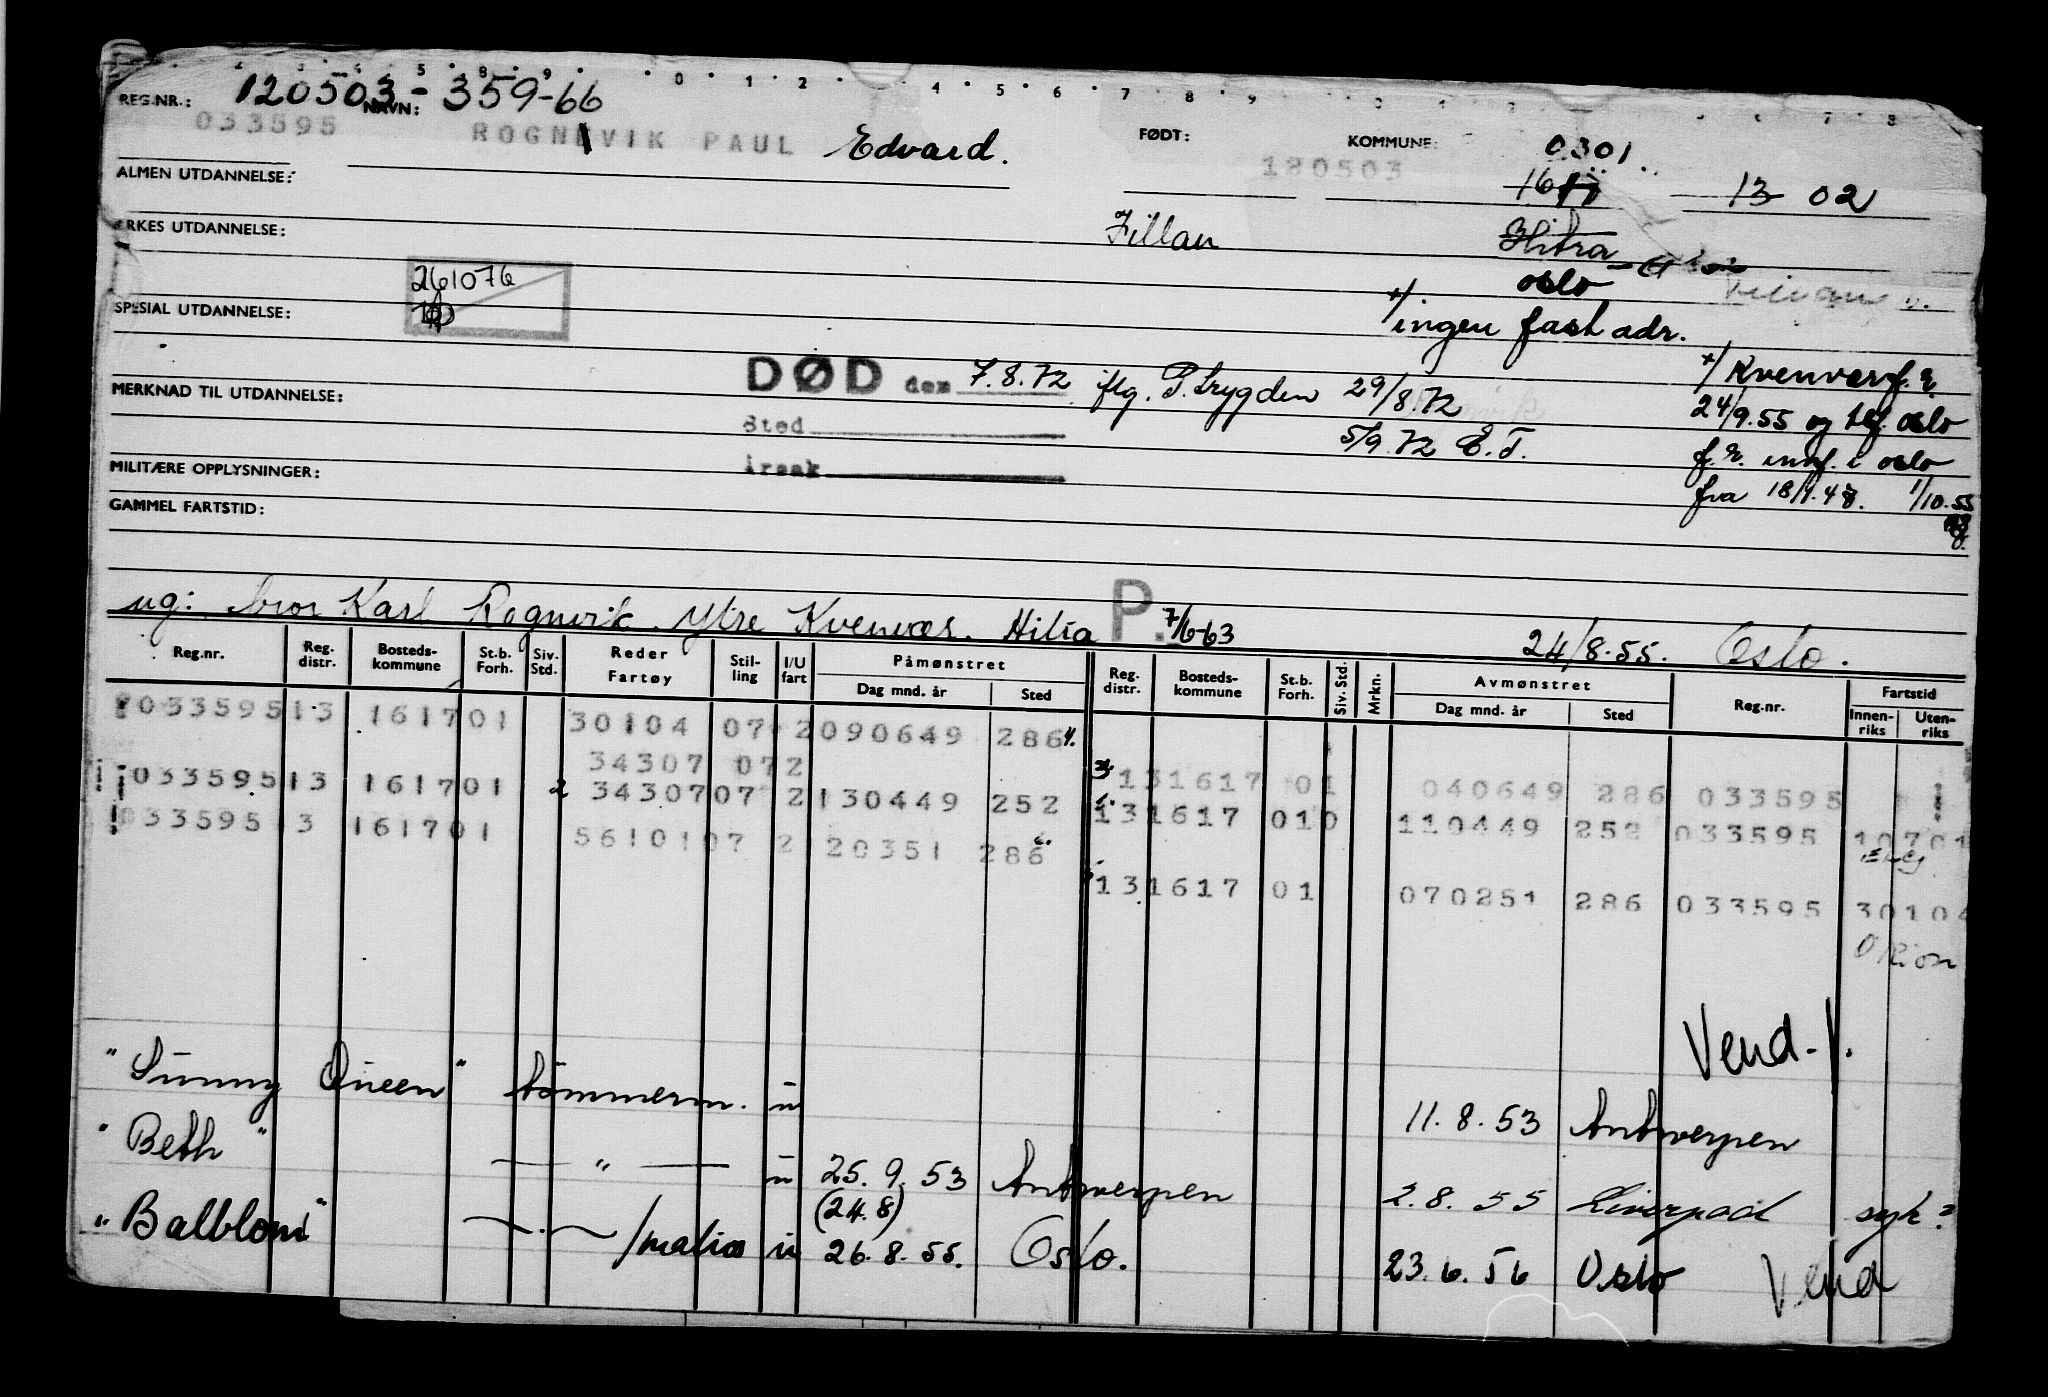 REG.NR.: 120503-359-66
033595
NAVN: ROGNEVIK PAUL Edvard.
FØDT: 180503
KOMMUNE: 0301.
1617 13 02
ALMEN UTDANNELSE:
YRKES UTDANNELSE:
Fillan Hitra
oslo
261076
+/ ingen fast adr.
SPESIAL UTDANNELSE:
DØD den 7.8.72 iflg. P.trygden 29/8.72
+/ Kvenvær f.r.
MERKNAD TIL UTDANNELSE:
Sted
5/9.72 E.T.
24/9.55 og tlf. oslo
MILITÆRE OPPLYSNINGER:
Årsak
f.r. innf. i oslo
GAMMEL FARTSTID:
fra 18/9.48. 1/10.55
ug: bror Karl Rognvik. Ytre Kvenvær. Hitra P. 7/6-63 24/8.55. Oslo.
Reg.nr. Reg. distr. Bosteds-kommune St.b. Forh. Siv. Std. Reder Fartøy Stil-ling I/U fart Påmønstret Dag mnd. år Sted Reg. distr. Bosteds-kommune St.b. Forh. Siv. Std. Mrkn. Avmønstret Dag mnd. år Sted Reg.nr. Fartstid Innen-riks Uten-riks
033595 13 1617 01 30104 07 2 090649 286
34307 07 2 13 1617 01 040649 286 033595
033595 13 1617 01 2 34307 07 2 130449 252 13 1617 01 0 110449 252 033595 10701
033595 3 1617 01 56101 07 2 20351 286
13 1617 01 070251 286 033595 30104
Orion
Vend-/.
"Sunny Queen" tømmerm. u 11.8.53 Antwerpen
"Beth" — " — u 25.9.53 Antwerpen 2.8.55 Liverpool syk?
(24.8)
"Balblom" —·— /matros u 26.8.55. Oslo. 23.6.56 Oslo Vend